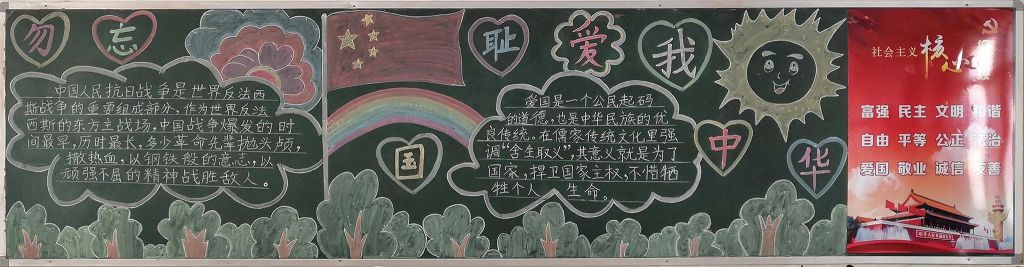 勿忘国耻 爱我中华
中国人民抗日战争是世界反法西
斯战争的重要组成部分,作为世界反法
西斯的东方主战场,中国战争爆发的时
间最早,历时最长,多少革命先辈抛头颅,
撒热血,以钢铁般的意志,以
顽强不屈的精神战胜敌人。
爱国是一个公民起码
的道德,也是中华民族的优
良传统。在儒家传统文化里强
调“舍生取义”,其意义就是为了
国家,捍卫国家主权,不惜牺
牲个人 生命。
社会主义
核心价值观
富强 民主 文明 和谐
自由 平等 公正 法治
爱国 敬业 诚信 友善